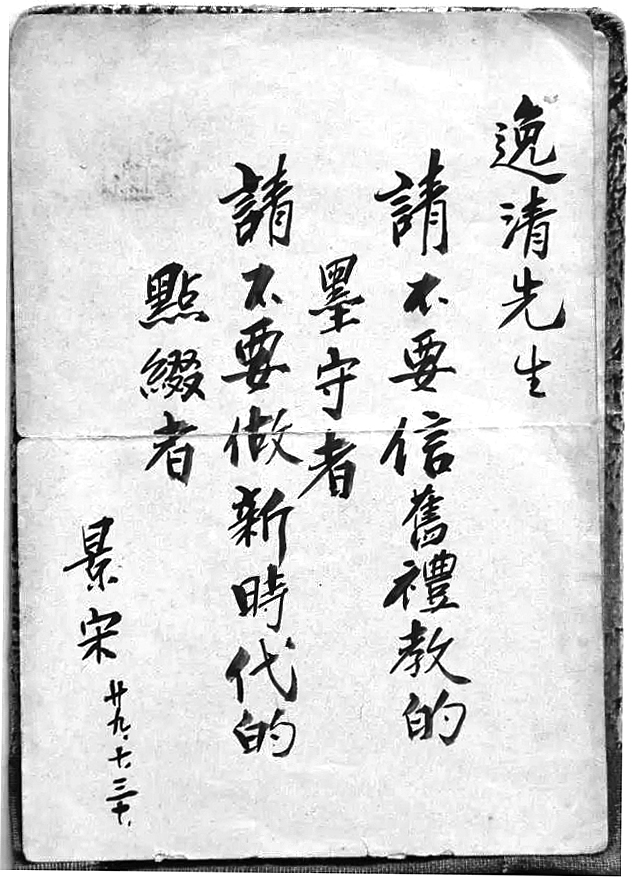 逸清先生
請不要信舊禮教的
墨守者
請不要做新時代的
點綴者
景宋
廿九、十、三十、